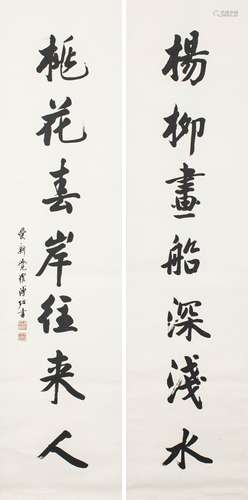 楊柳畫船深淺水
桃花春岸往来人
愛新覺羅溥佐書